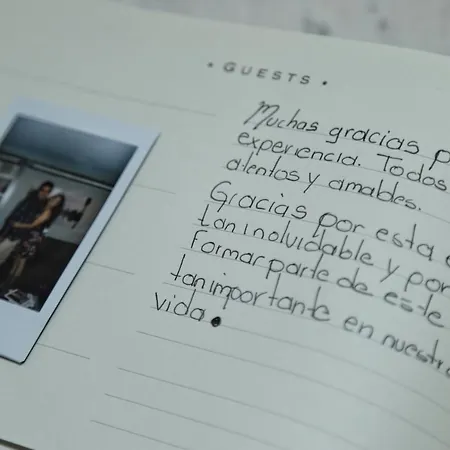 • GUESTS •
Muchas gracias p
experiencia. Todos
atentos y amables.
Gracias por esta
tan inolvidable y por
Formar parte de este
tan importante en nuestra
vida.